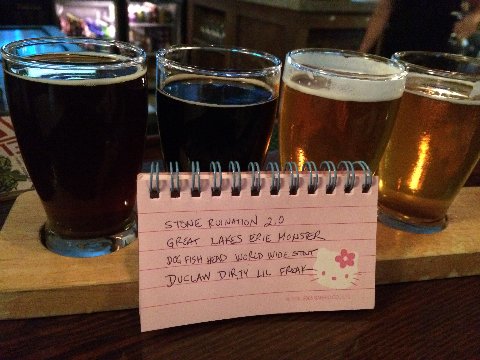 STONE RUINATION 2.0
GREAT LAKES ERIE MONSTER
DOGFISH HEAD WORLD WIDE STOUT
DUCLAW DIRTY LIL FREAK